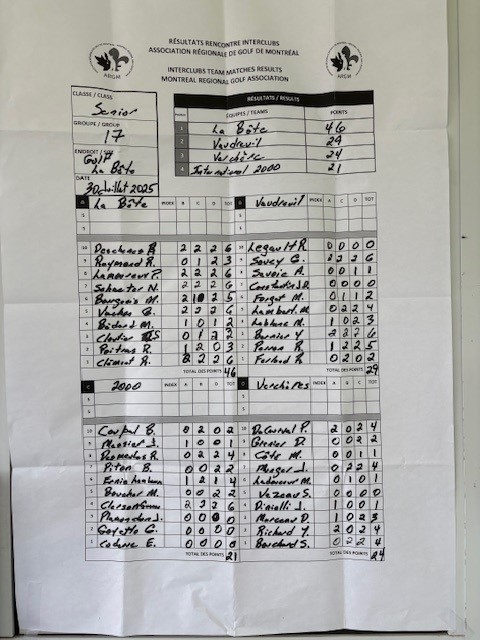 RÉSULTATS RENCONTRE INTERCLUBS
ASSOCIATION RÉGIONALE DE GOLF DE MONTRÉAL
INTERCLUBS TEAM MATCHES RESULTS
MONTREAL REGIONAL GOLF ASSOCIATION
ARGM
ARGM
CLASSE / CLASS
Senior
GROUPE / GROUP
17
ENDROIT / SITE
Golf
La Bâte
DATE
30 Juillet 2025
RÉSULTATS / RESULTS
ÉQUIPES / TEAMS POINTS
1 La Bâte 46
2 Vaudreuil 29
3 Verchère 24
4 International 2000 21
A La Bâte INDEX B C D TOT
10 Deschanes R 2 2 2 6
9 Raymond R. 0 1 2 3
8 Lamoureux P. 2 2 2 6
7 Schaeter N. 2 2 2 6
6 Bourgeois M. 2 1 2 5
5 Vachon G. 2 2 2 6
4 Bédard M. 1 0 1 2
3 Cloutier 0 1 2
2 Poitras R. 1 2 0 3
1 Clément R. 2 2 2 6
TOTAL DES POINTS 46
B Vaudreuil INDEX A C D TOT
10 Legault R. 0 0 0 0
9 Soucy G. 2 2 2 6
8 Savoie A. 0 0 1 1
7 Constantin D. 0 0 0 0
6 Forget M. 0 1 1 2
5 Lambert M. 0 2 2 4
4 Leblanc M. 1 0 2 3
3 Bernier Y. 2 2 2 6
2 Perron R. 1 2 2 5
1 Ferland R. 0 2 0 2
TOTAL DES POINTS 29
C 2000 INDEX A B D TOT
10 Coupal B. 0 2 0 2
9 Messier J. 1 0 0 1
8 Desmeules R. 0 2 2 4
7 Piton B. 0 0 2 2
6 1 2 1 4
5 Boucher M. 0 0 2 2
4 2 2 2 6
3 0 0 0 0
2 Goyette G. 0 0 0 0
1 Caderre E. 0 0 0 0
TOTAL DES POINTS 21
D Verchères INDEX A B C TOT
10 DeCourval P. 2 0 2 4
9 Grenier D. 0 0 2 2
8 Côté M. 0 0 1 1
7 Munger J. 0 2 2 4
6 Ladouceur M. 0 1 0 1
5 Vezeau S. 0 0 0 0
4 Dinielli J. 1 0 0 1
3 Marceau D. 1 0 2 3
2 Richard Y. 2 0 2 4
1 Bouchard S. 0 2 2 4
TOTAL DES POINTS 24